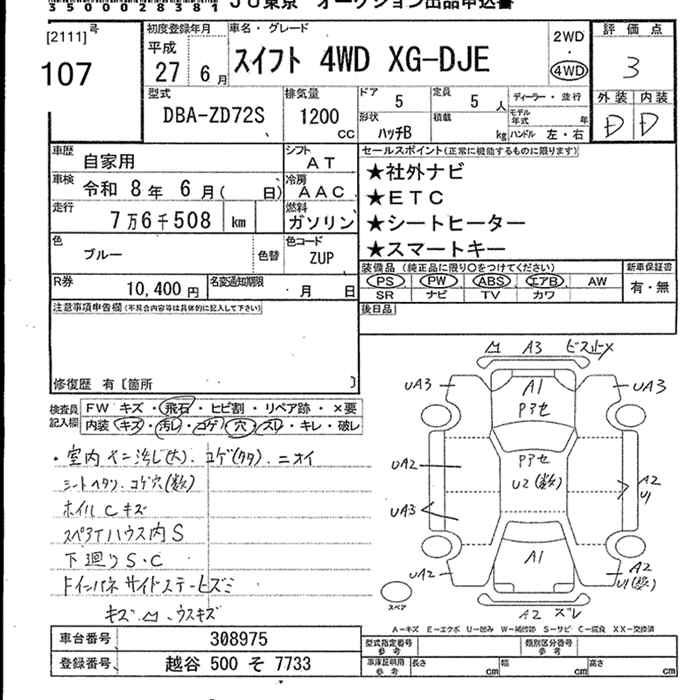 55000028381 JU東京 オークション出品申込書
[2111]号
107
初度登録年月
平成
27年 6月
車名・グレード
スイフト 4WD XG-DJE
2WD
・
4WD
評価点
3
外装 内装
D D
型式
DBA-ZD72S
排気量
1200
cc
ドア
5
定員
5人
形状
ハッチB
積載
kg
ディーラー・並行
モデル年式 年
ハンドル 左・右
車歴
自家用
シフト
AT
車検
令和 8年 6月( 日)
冷房
AAC
走行
7万6千508 km
燃料
ガソリン
色
ブルー
色替
色コード
ZUP
R券
10,400円
名変通知期限
月 日
セールスポイント(正常に機能するものに限ります)
★社外ナビ
★ETC
★シートヒーター
★スマートキー
装備品(純正品に限り○をつけてください)
PS PW ABS エアB AW
SR ナビ TV カワ
新車保証書
有・無
後日品
注意事項申告欄(不具合内容等は具体的に記入して下さい)
修復歴 有〔箇所 〕
検査員
記入欄
FW キズ・飛石・ヒビ割・リペア跡・×要
内装 キズ・汚レ・コゲ・穴・スレ・キレ・破レ
・室内 ヤニ汚レ(大)、コゲ(多タ)、ニオイ
シートヘタリ、コゲ穴(数)
ホイルCキズ
スペアTハウス内S
下廻りS・C
ドインパネ サイドステーヒズミ
キズ、凹、ウスキズ
凹 A3 ビス止メ
UA3 A1 UA3
Pアセ
UA2 Pアセ
U2(数) A2
U1
UA3
UA2 A1 A2
U1(数)
スペア A2 ズレ
A-キズ E-エクボ U-凹み W-補修跡 S-サビ C-腐食 XX-交換済
車台番号 308975
登録番号 越谷 500 そ 7733
型式指定番号
参考
類別区分番号
参考
車庫証明用
参考
長さ cm
幅 cm
高さ cm